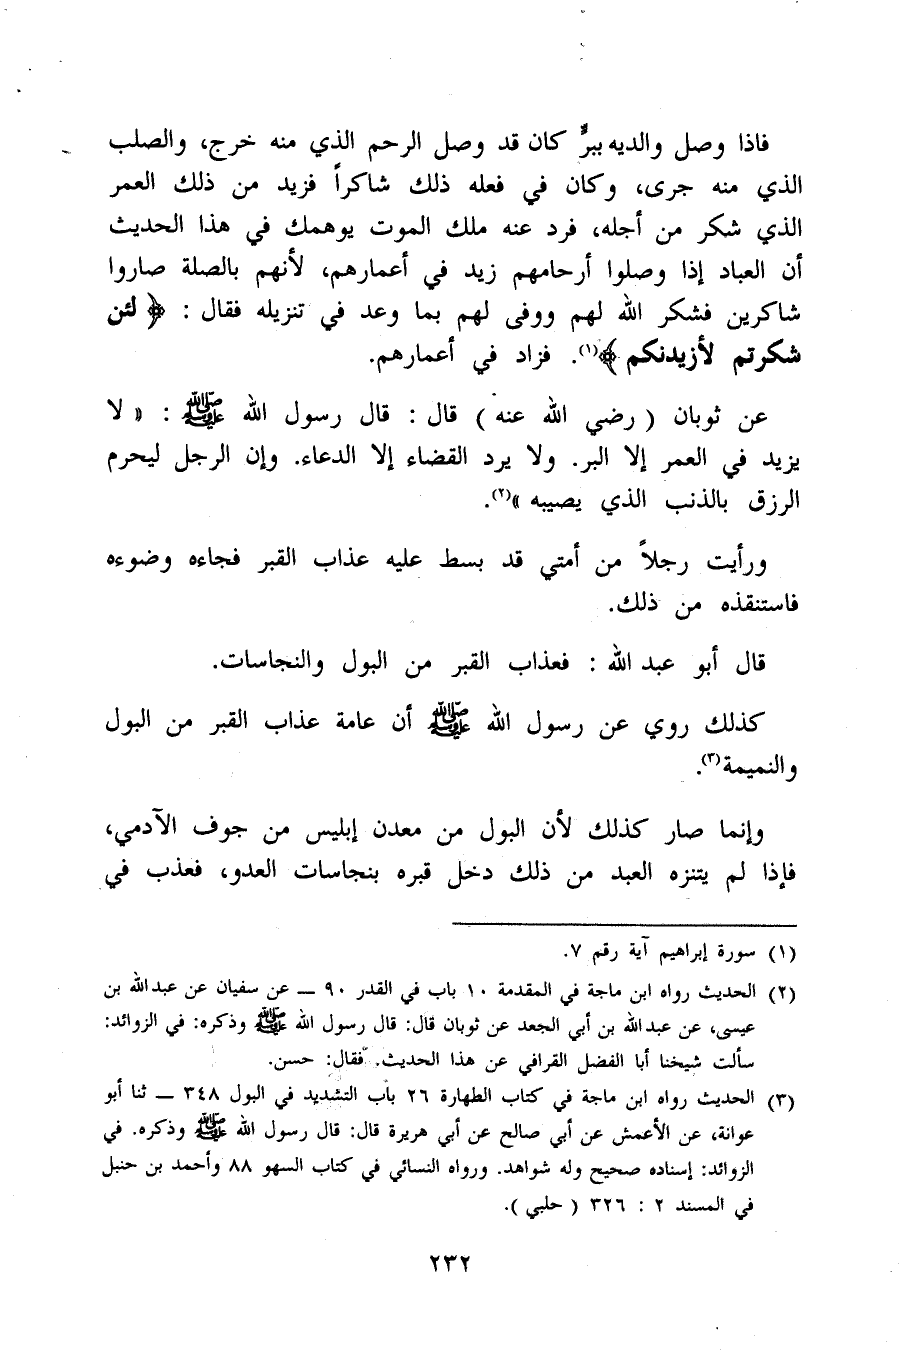 فاذا وصل والديه ببرٍّ كان قد وصل الرحم الذي منه خرج، والصلب
الذي منه جرى، وكان في فعله ذلك شاكراً فزيد من ذلك العمر
الذي شكر من أجله، فرد عنه ملك الموت يوهمك في هذا الحديث
أن العباد إذا وصلوا أرحامهم زيد في أعمارهم، لأنهم بالصلة صاروا
شاكرين فشكر الله لهم ووفى لهم بما وعد في تنزيله فقال : ﴿ لئن
شكرتم لأزيدنكم ﴾(١). فزاد في أعمارهم.
عن ثوبان ( رضي الله عنه ) قال : قال رسول الله ﷺ : « لا
يزيد في العمر إلا البر. ولا يرد القضاء إلا الدعاء. وإن الرجل ليحرم
الرزق بالذنب الذي يصيبه »(٢).
ورأيت رجلاً من أمتي قد بسط عليه عذاب القبر فجاءه وضوءه
فاستنقذه من ذلك.
قال أبو عبد الله : فعذاب القبر من البول والنجاسات.
كذلك روي عن رسول الله ﷺ أن عامة عذاب القبر من البول
والنميمة(٣).
وإنما صار كذلك لأن البول من معدن إبليس من جوف الآدمي،
فإذا لم يتنزه العبد من ذلك دخل قبره بنجاسات العدو، فعذب في
(١) سورة إبراهيم آية رقم ٧.
(٢) الحديث رواه ابن ماجة في المقدمة ١٠ باب في القدر ٩٠ ــ عن سفيان عن عبد الله بن
عيسى، عن عبد الله بن أبي الجعد عن ثوبان قال: قال رسول الله ﷺ وذكره: في الزوائد:
سألت شيخنا أبا الفضل القرافي عن هذا الحديث. فقال: حسن.
(٣) الحديث رواه ابن ماجة في كتاب الطهارة ٢٦ باب التشديد في البول ٣٤٨ ــ ثنا أبو
عوانة، عن الأعمش عن أبي صالح عن أبي هريرة قال: قال رسول الله ﷺ وذكره. في
الزوائد: إسناده صحيح وله شواهد. ورواه النسائي في كتاب السهو ٨٨ وأحمد بن حنبل
في المسند ٢ : ٣٢٦ ( حلبي ).
٢٣٢